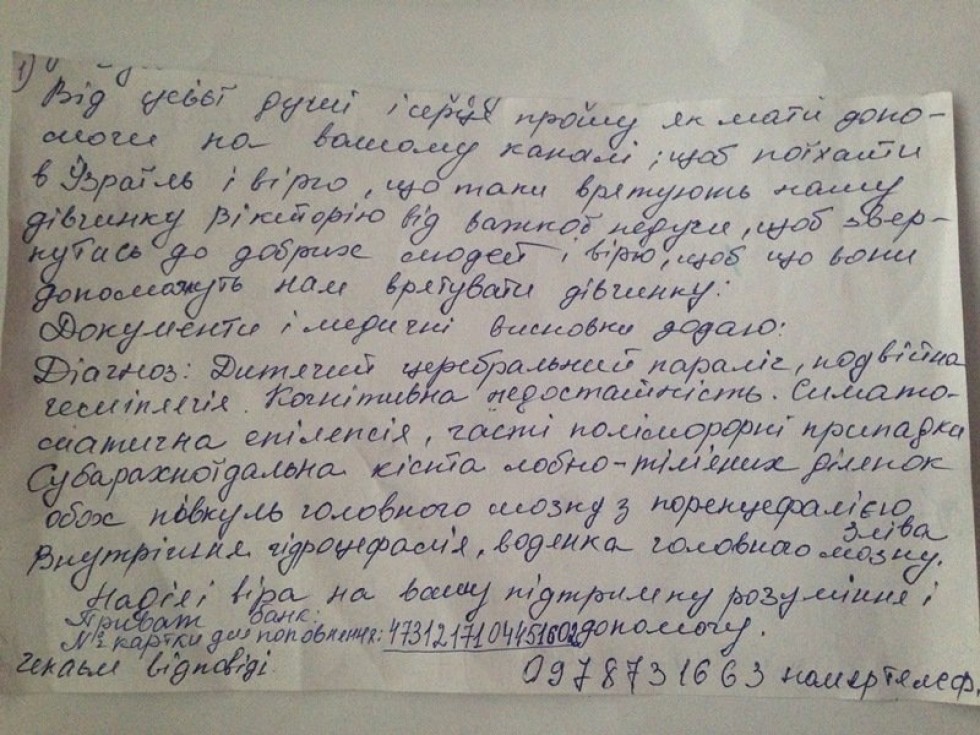 1)
Від усієї душі і серця прошу як мати допо-
моги на вашому каналі; щоб поїхати
в Ізраїль і вірю, що таки врятують нашу
дівчинку Вікторію від важкої недуги, щоб звер-
нутись до добрих людей і вірю, щоб що вони
допоможуть нам врятувати дівчинку:
Документи і медичні висновки додаю:
Діагноз: Дитячий церебральний параліч, подвійна
геміплегія. Когнітивна недостатність. Симато-
матична епілепсія, часті поліморфні припадки
Субарахноїдальна кіста лобно-тім'яних ділянок
обох півкуль головного мозку з поренцефалією
зліва
Внутрішня гідроцефалія, водянка головного мозку.
Надія і віра на вашу підтримку розуміння і
Приват банк:
№ картки для поповнення: 4731217104451602 допомогу.
чекаєм відповіді.
0978731663 номер телеф.